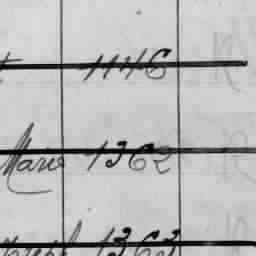 1146
Marie 1362
1363